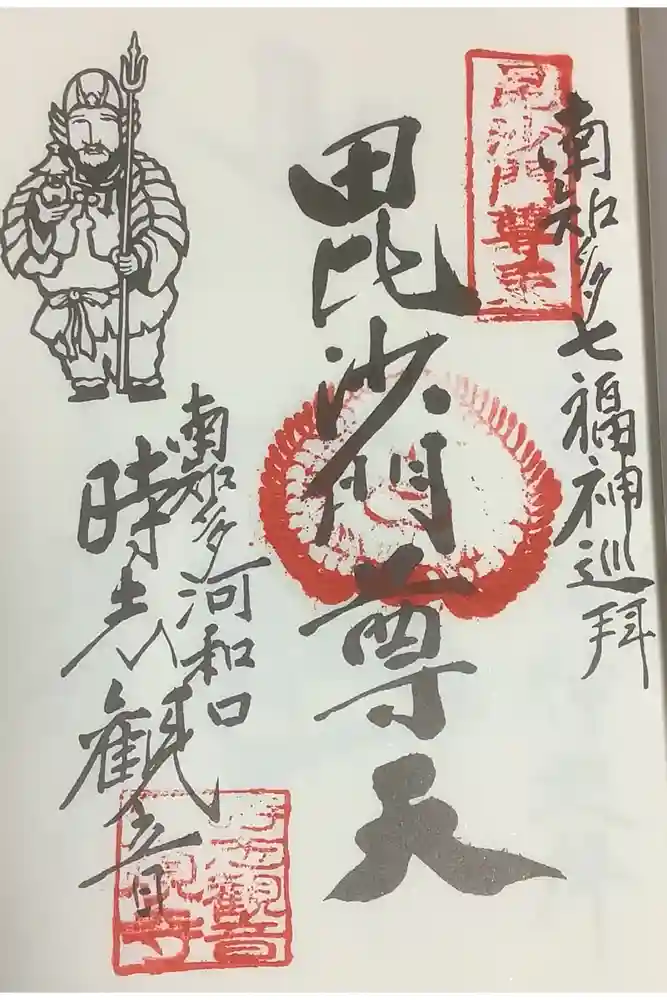 南知多七福神巡拜
毘沙門尊天
南知多河和口
時志観音
毘沙門尊天